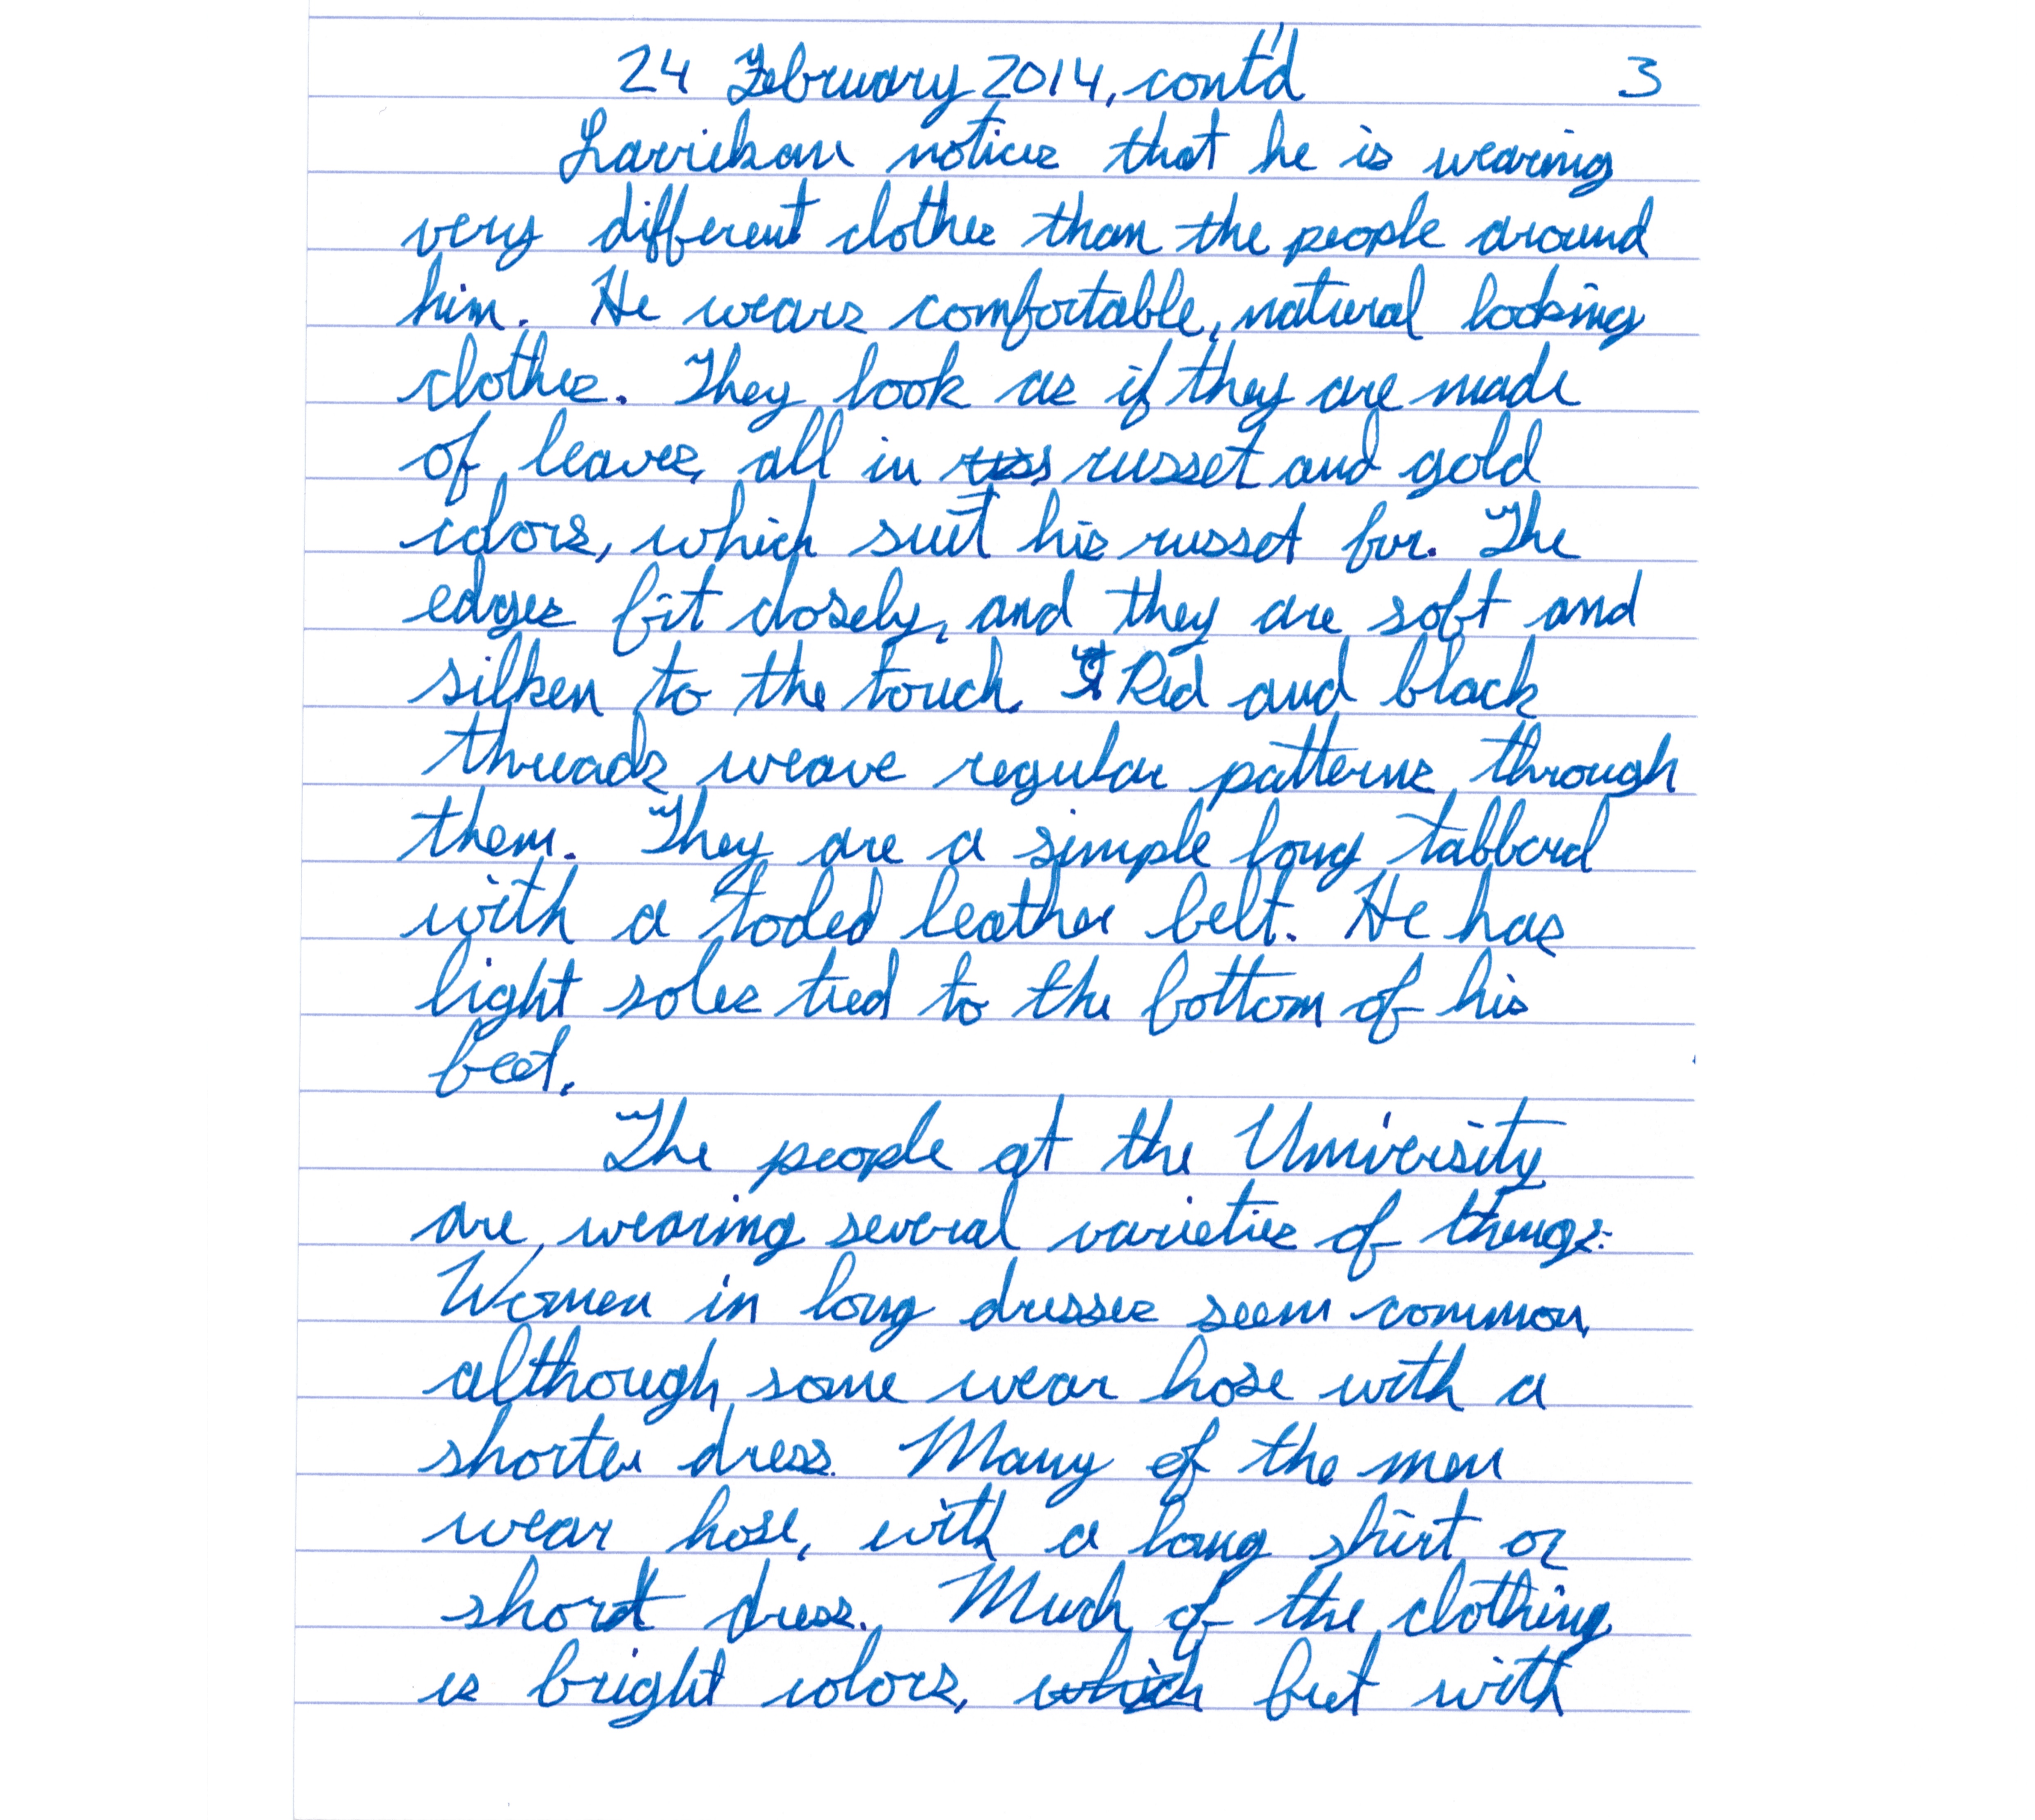 24 February 2014, cont'd 3
Larrickan notices that he is wearing
very different clothes than the people around
him. He wears comfortable, natural looking
clothes. They look as if they are made
of leaves, all in russ russet and gold
colors, which suit his russet fur. The
edges fit closely, and they are soft and
silken to the touch. Red and black
threads weave regular patterns through
them. They are a simple long tabbard
with a tooled leather belt. He has
light soles tied to the bottom of his
feet.
The people at the University
are wearing several varieties of things.
Women in long dresses seem common,
although some wear hose with a
shorter dress. Many of the men
wear hose, with a long shirt or
short dress. Much of the clothing
is bright colors, which but with